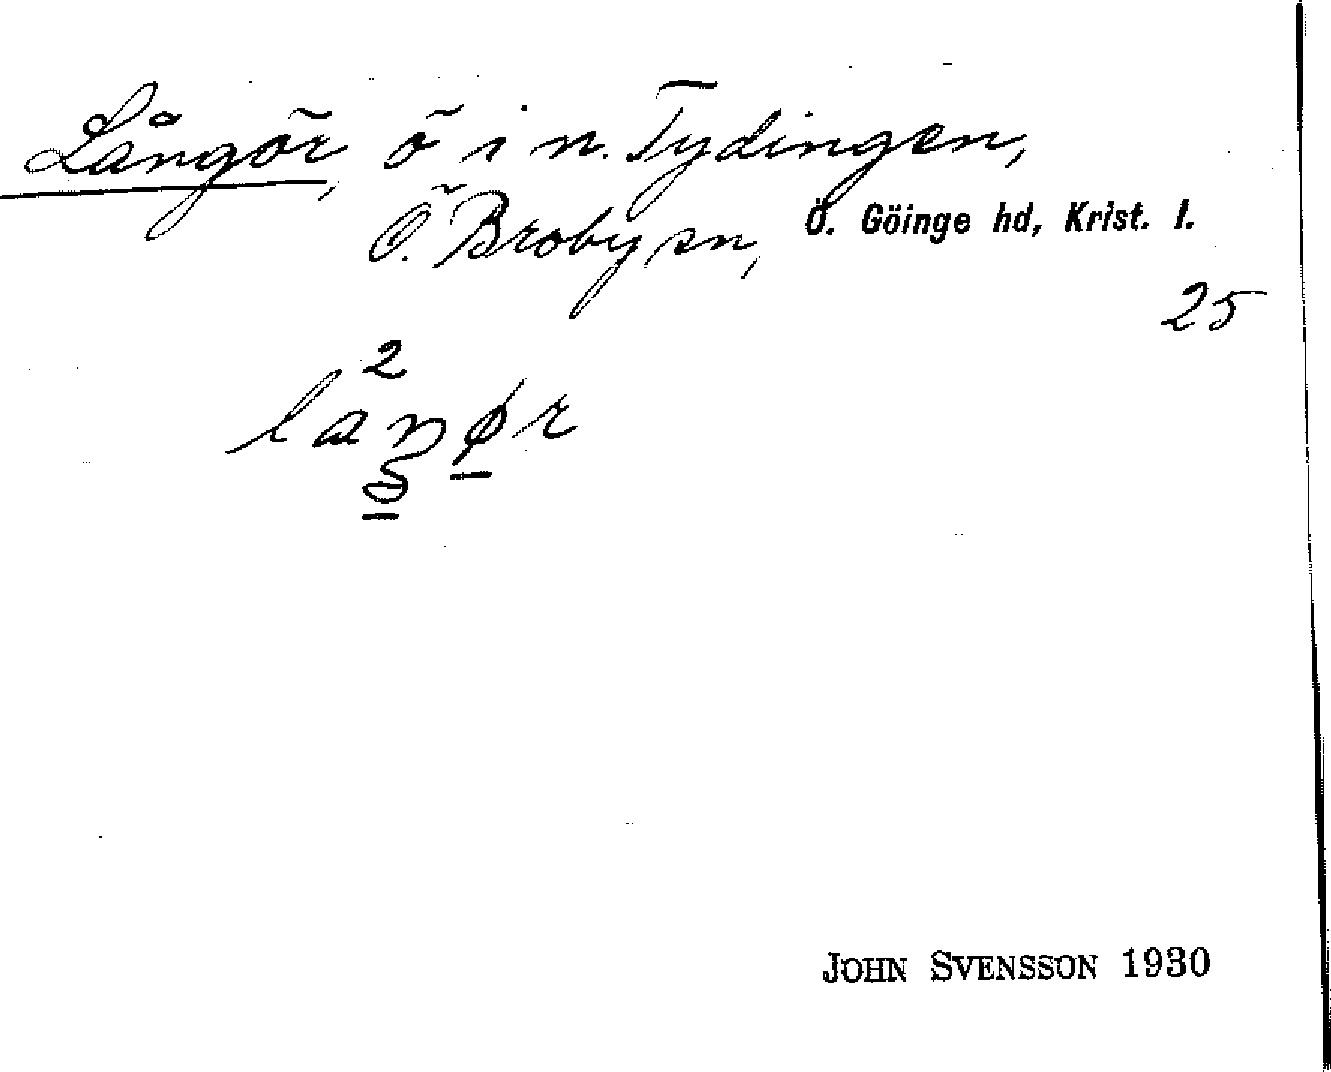 Långör, ö i n. Tydingen,
Ö. Broby sn, Ö. Göinge hd, Krist. l.
25
2
laŋør
JOHN SVENSSON 1930